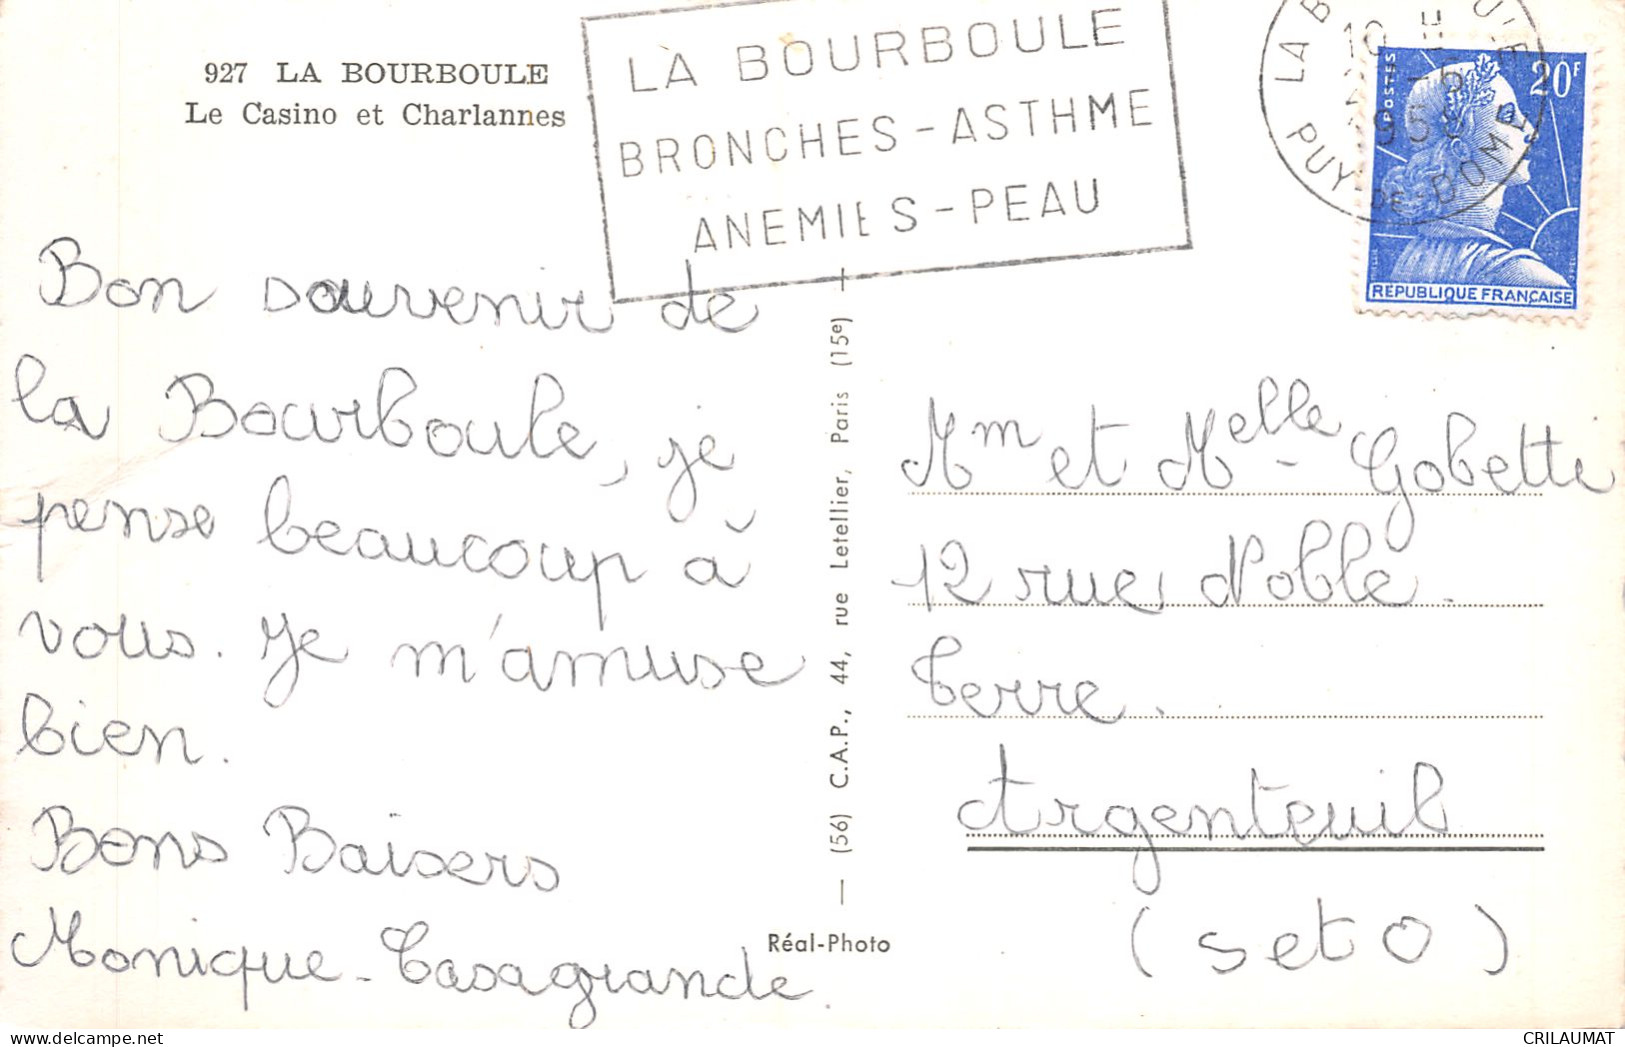 927 LA BOURBOULE
Le Casino et Charlannes
LA BOURBOULE
BRONCHES - ASTHME
ANEMIES - PEAU
PUY-DE-DOME
POSTES
20F
REPUBLIQUE FRANÇAISE
Bon souvenir de
la Bourboule, je
pense beaucoup à
vous. Je m'amuse
bien.
Bons Baisers
Monique - Casagrande
(56) C.A.P., 44, rue Letellier, Paris (15e)
Réal-Photo
Mm et Melle Gobetti
12 rue Noble
Terre.
Argenteuil
(S et O)
CRILAUMAT